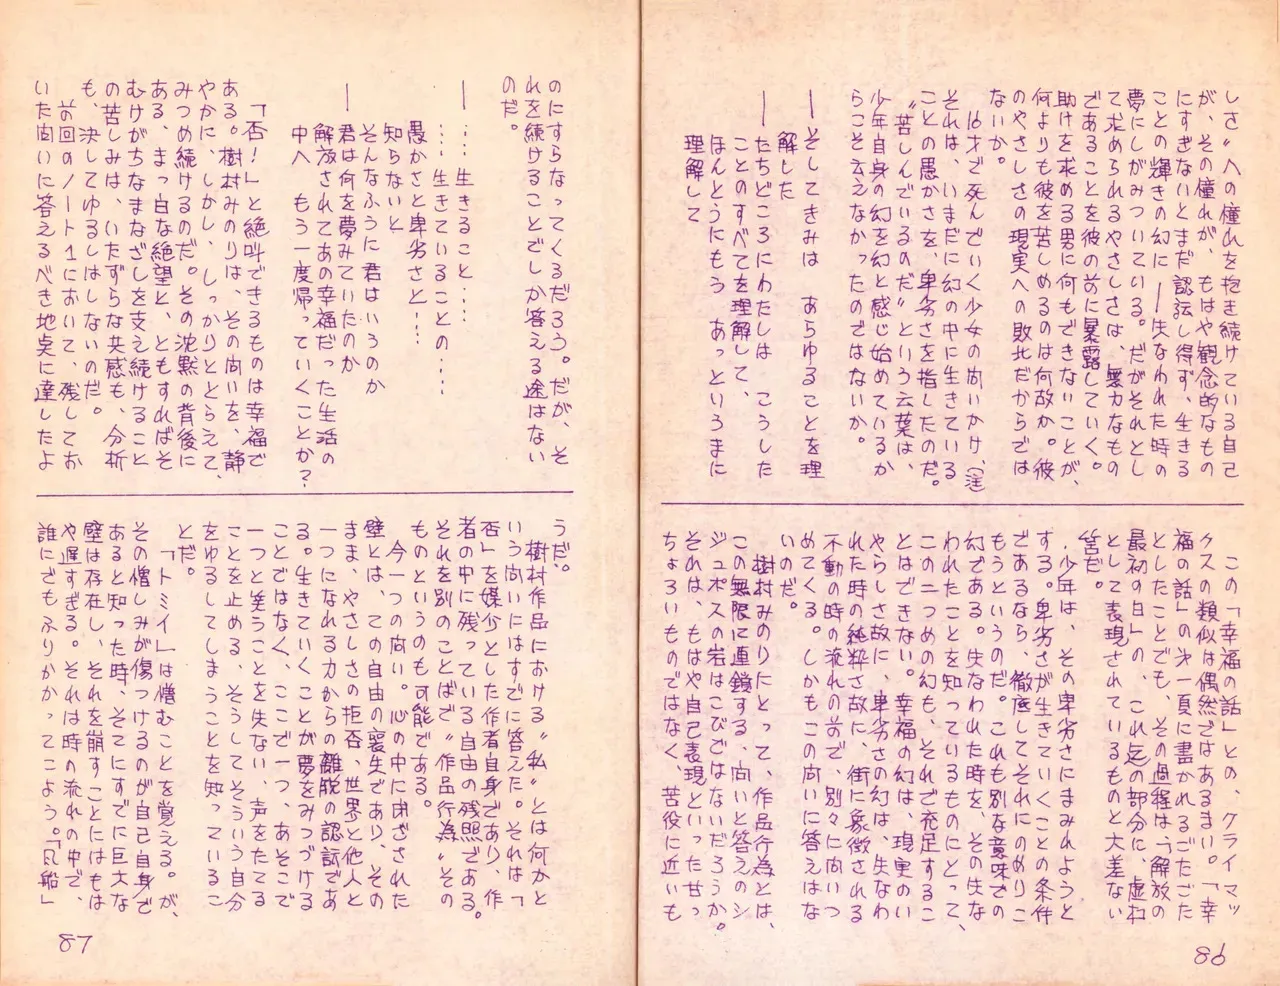 しさ〟への憧れを抱き続けている自己
が、その憧れが、もはや観念的なもの
にすぎないとまだ認伝し得ず、生きる
ことの輝きの幻に――失なわれた時の
夢にしがみついている。だがそれとし
て求められるやさしさは、無力なもの
であることを彼の前に暴露していく。
助けを求める男に何もできないことが、
何よりも彼を苦しめるのは何故か。彼
のやさしさの現実への敗北だからでは
ないか。
16才で死んでいく少女の問いかけ、(注)
それは、いまだに幻の中に生きている
ことの愚かさを、卑劣さを指したのだ。
〝苦しんでいるのだ〟という云葉は、
少年自身の幻を幻と感じ始めているか
らこそ云えなかったのではないか。
――そしてきみは あらゆることを理
解した
――たちどころにわたしは こうした
ことのすべてを理解して、
ほんとうにもう あっというまに
理解して
この「幸福の話」との、クライマッ
クスの類似は偶然ではあるまい。「幸
福の話」の㐧一頁に畫かれるごたごた
としたことでも、その過程は、「解放の
最初の日」の、これ迄の部分に、虚ね
として表現されているものと大差ない
筈だ。
少年は、その卑劣さにまみれようと
する。卑劣さが生きていくことの条件
であるなら、徹底してそれにのめりこ
もうというのだ。これも別な意味での
幻である。失なわれた時を、その失な
われたことを知っているものにとって、
この二つめの幻も、それで充足するこ
とはできない。幸福の幻は、現実のい
やらしさ故に、卑劣さの幻は、失なわ
れた時の純粋さ故に、街に象徴される
不動の時の流れの前で、別々に向いつ
めてくる。しかもこの向いに答えはな
いのだ。
樹村みのりにとって、作品行為とは、
この無限に連鎖する、向いと答えのシ
ジュポスの岩はこびではないだろうか。
それは、もはや自己表現といった甘っ
ちょろいものではなく、苦役に近いも
86
のにすらなってくるだろう。だが、そ
れを続けることでしか答える途はない
のだ。
――……生きること……
……生きていることの……
愚かさと卑劣さと……
知らないと
そんなふうに君はいうのか
――君は何を夢みていたのか
解放されてあの幸福だった生活の
中へ もう一度帰っていくことか?
「否!」と絶叫できるものは幸福で
ある。樹村みのりは、その向いを、静
やかに、しかし、しっかりととらえて、
みつめ続けるのだ。その沈黙の背後に
ある、まっ白な絶望と、ともすればそ
むけがちなまなざしを支え続けること
の苦しみは、いたずらな共感も、分析
も、決してゆるしはしないのだ。
前回のノート1において、残してお
いた問いに答えるべき地点に達したよ
うだ。
樹村作品における〝私〟とは何かと
いう向いにはすでに答えた。それは「
否」を媒介とした作者自身であり、作
者の中に残っている自由の残照である。
それを別のことばで〝作品行為〟その
ものというのも可能である。
今一つの向い。心の中に閉ざされた
壁とは、ての自由の裏生であり、その
まま、やさしさの拒否、世界と他人と
一つになれる力からの離脱の認証であ
る。生きていくことが夢をみつづける
ことではなく、ここで一つ、あそこで
一つと笑うことを失ない、声をたてる
ことを止める、そうしてそういう自分
をゆるしてしまうことを知っているこ
とだ。
「トミイ」は憎むことを覚える。が、
その憎しみが傷つけるのが自己自身で
あると知った時、そこにすでに巨大な
壁は存在し、それを崩すことにはもは
や遅すぎる。それは時の流れの中で、
誰にでもふりかかってこよう。「風船」
87